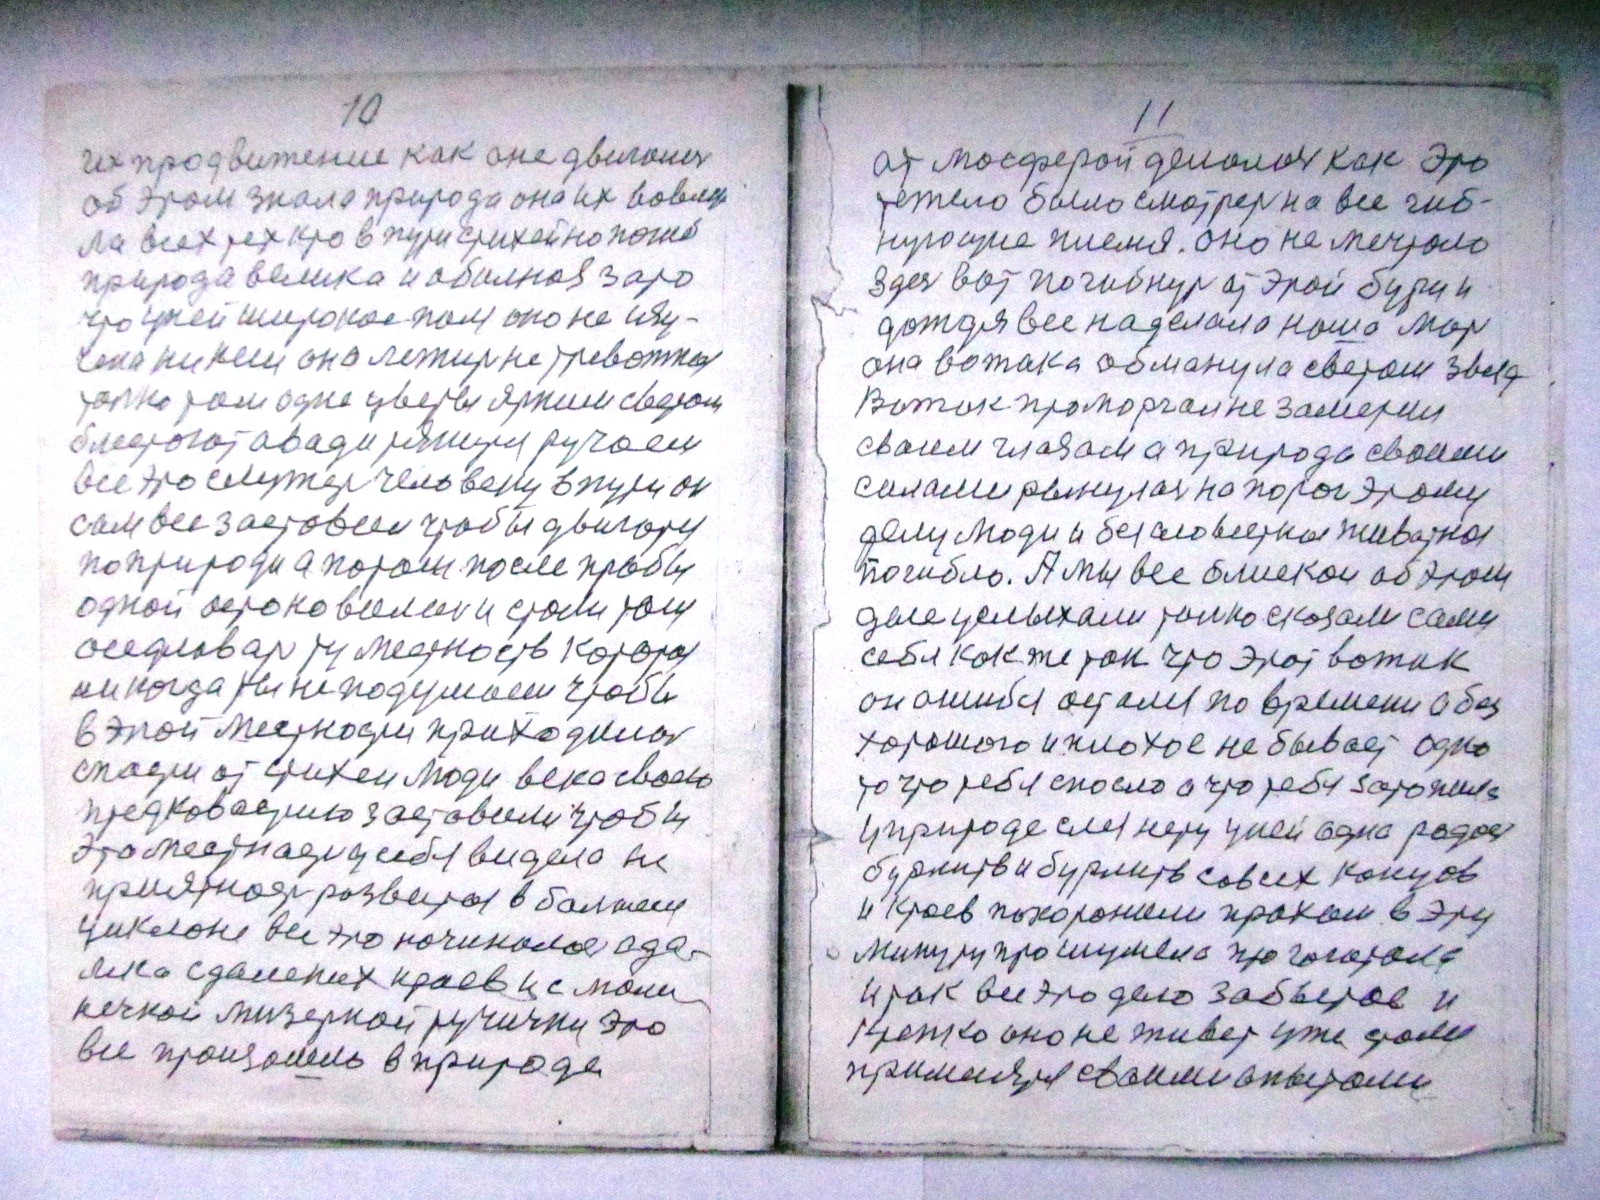 10
их продвижение как оне двигались
об этом знала природа она их вовлек
ла всех тех кто в пути стихейно погиб
природа велика и обилноя зато
что у ней широкое пол оно не изу-
чена ни кем она лежит не тревожноя
толко там одне цветы ярким светом
блестят а вади тянутся ручаем
все это служет человеку в пути он
сам все заставел чтобы двигатя
по природи а потом после пробы
одной астоновились и стали там
оседловат ту местность которая
ни когда ты не подумаеш чтобы
в этой местности приходилос
спасти от стихеи люди века своею
предковастию заставели чтобы
эта местност у себя видела не
приятност развития в болшем
циклоне все это начиналос сда-
лека с далеких краев и с мали
нечкой мизерной тучички это
все произошло в природе
11
ат мосферой делолоя как это
тежело было смотрет на все гиб-
нующие племя. оно не мечтоло
здес вот погибнут от этой бури и
дождя все наделала наша мат
она вожака обманула светом звезд
Вожак проморгал не заметил
своем глазам а природа своими
силами рынулас на порог этому
делу люди и бессловестная животная
погибло. А мы все близкои об этом
деле услыхали толко сказали сами
себя как же так что этот вожак
он ошибся остался по времени а без
хорошого и плохое не бывает одно
то что тебя спосло а что тебя заторжила
у природе слез нету у ней одна радост
бурлить и бурлить с овсех концов
и краев похоронили прахом в эту
минуту прошумела прогогатала
и так все это дело забытое и
крепко оно не живет уже стали
примиятся своими опытами